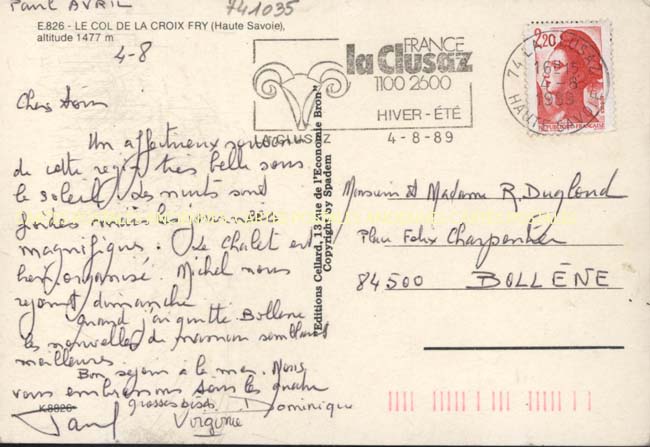 Paul AVRIL
741035
E.826 - LE COL DE LA CROIX FRY (Haute Savoie),
altitude 1477 m
4-8
FRANCE
la Clusaz
1100 2600
HIVER - ÉTÉ
4-8-89
LA CLUSAZ
2,20
Chers
Un affectueux
de cette région très belle sous
le soleil. Les nuits sont
froides mais les journées
magnifiques. Le chalet est
bien organisé. Michel nous
rejoint dimanche
Quand j'ai quitté Bollène
les nouvelles de maman semblaient
meilleures.
Bon séjour à la mer. Nous
vous embrassons tous les quatre
grosses bises. Dominique
Paul Virginie
K8826
Editions Cellard, 13 rue de l'Economie Bron
Copyright by Spadem
Monsieur et Madame R. Duglond
Place Felix Charpentier
84500 BOLLÈNE